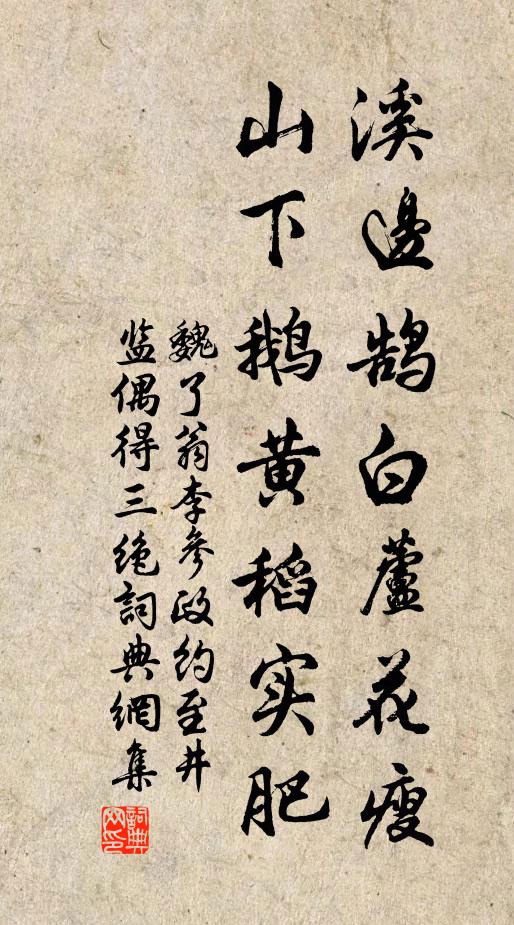 溪邊鹄白蘆花瘦
山下鹅黄稻实肥
魏了翁李参政约至井
监偶得三绝詞典網集
詞典
网印